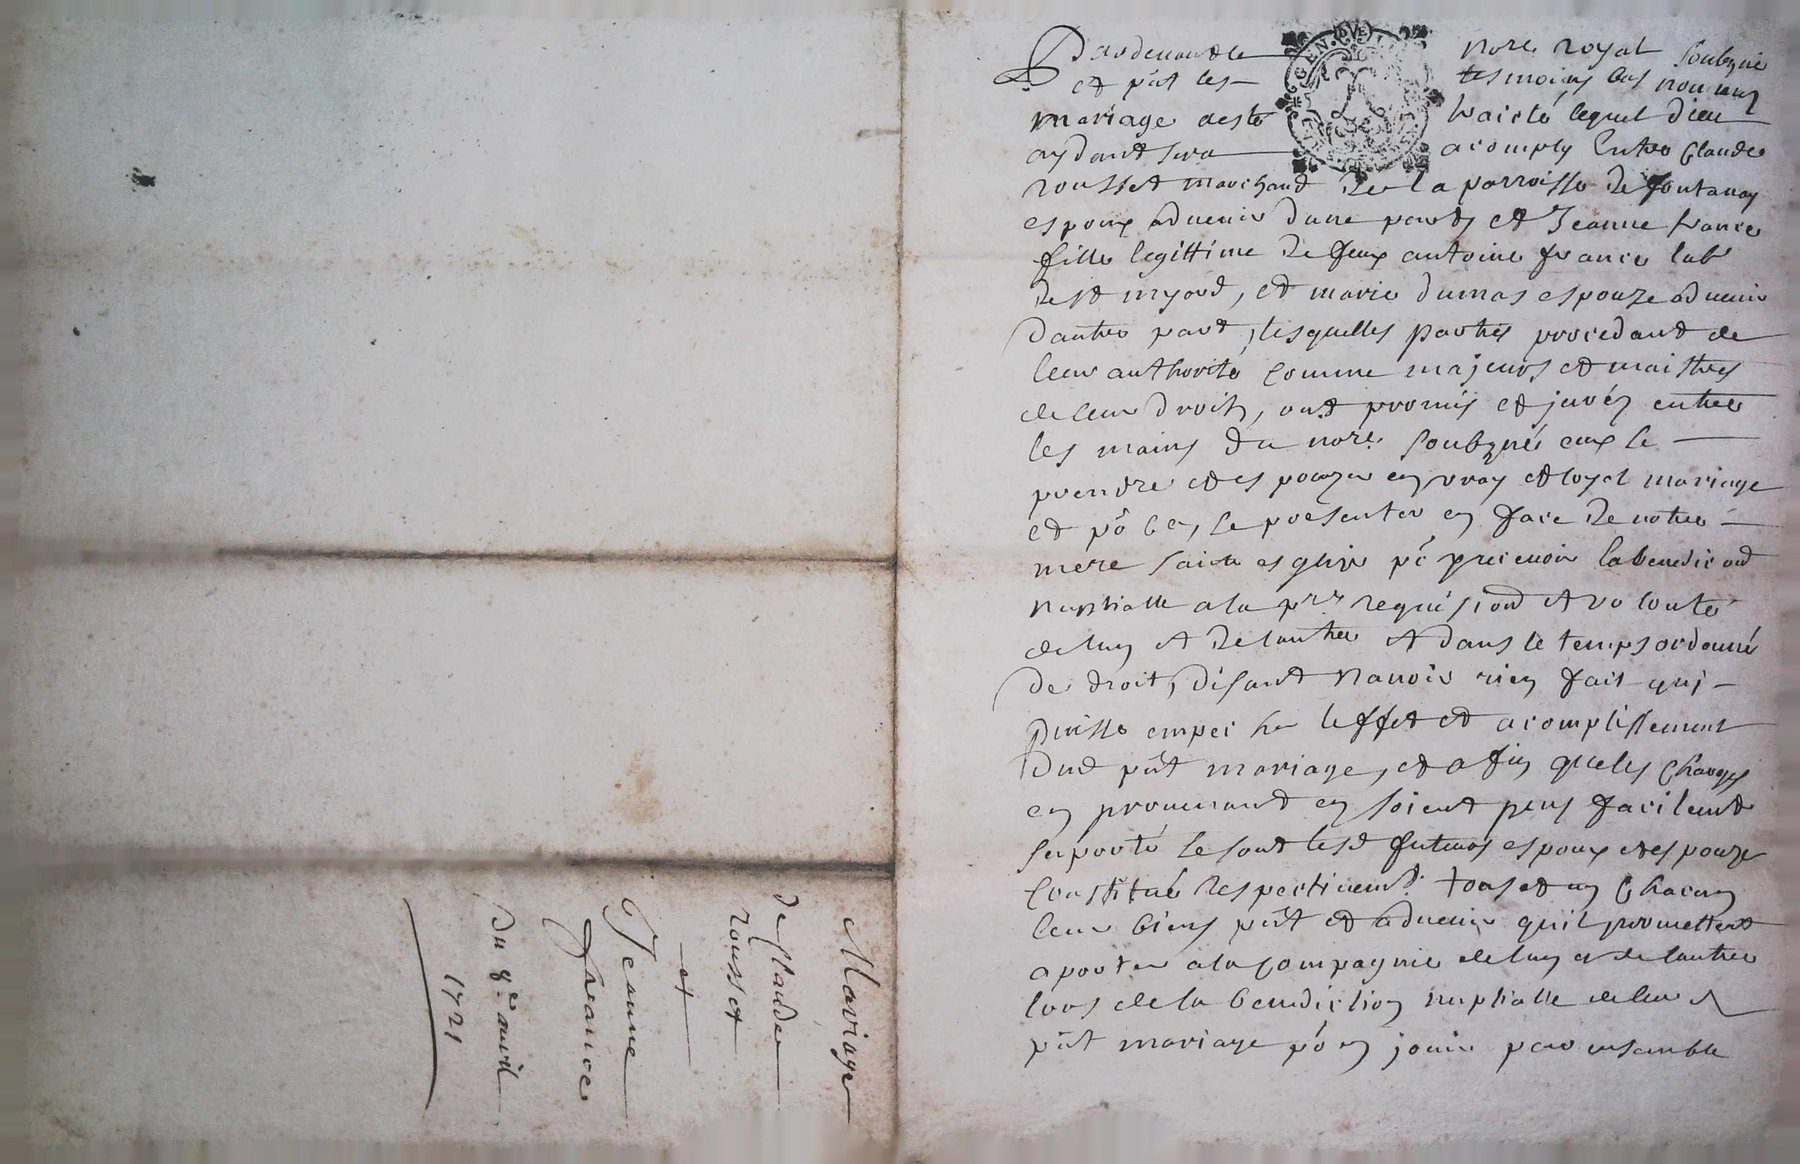 Mariage
de Claude
rousset
et
Jeanne
france
Du 8e auril
1721
GEN. DVE
Pardeuant le nore royal soubzné
et pñt les tesmoins bas nommez
mariage a esté traicté lequel dieu
aydant sera acomply Entre Claude
rousset marchand de la parroisse de fontanay
espoux aduenir dune part, et Jeanne france
fille legittime de feux antoine france lab
de st myard, et marie dumas espouze aduenir
dautre part, lesquelles parties procedant de
leur authorité comme majeurs et maistres
de leur droits, ont promis et jurés entre
les mains du nore soubzné eux se
prendre et espouzer en vray et loyal mariage
et pō ce, se presenter en face de notre
mere saincte esglize pō y receuoir la benediōn
nuptialle a la pre requisiōn et volonté
de lun et de lautre et dans le temps ordonné
de droit, disant nauoir rien fait qui
puisse empecher leffet et acomplissement
dud pñt mariage, et afin que les charges
en prouenant en soient plus facilemt
suporté se sont lesd futurs espoux et espouze
constitué respectiuemt tous et un chacun
leur biens pñt et aduenir quil promettent
aporter a la compagnie de lun et de lautre
lors de la benediction nuptialle de leur d
pñt mariage pō en jouir par ensemble